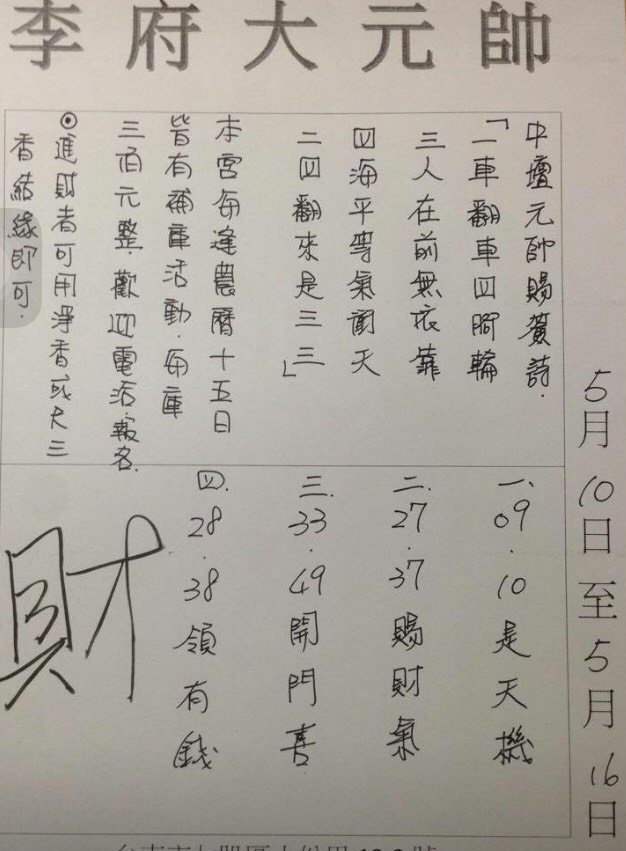 李府大元帥
5月10日至5月16日
中壇元帥賜 詩.
「一車翻車四腳輪
三人在前無依靠
四海平等氣 天
二四翻來是三三」
本宮每逢農曆十五日
皆有補庫活動.每庫
三佰元整.歡迎電話.報名.
⊙進財者可用淨香或尺三
香結緣即可.
一、09.10是天機
二.27.37賜財氣
三.33.49開門喜
四.28.38領有錢
財